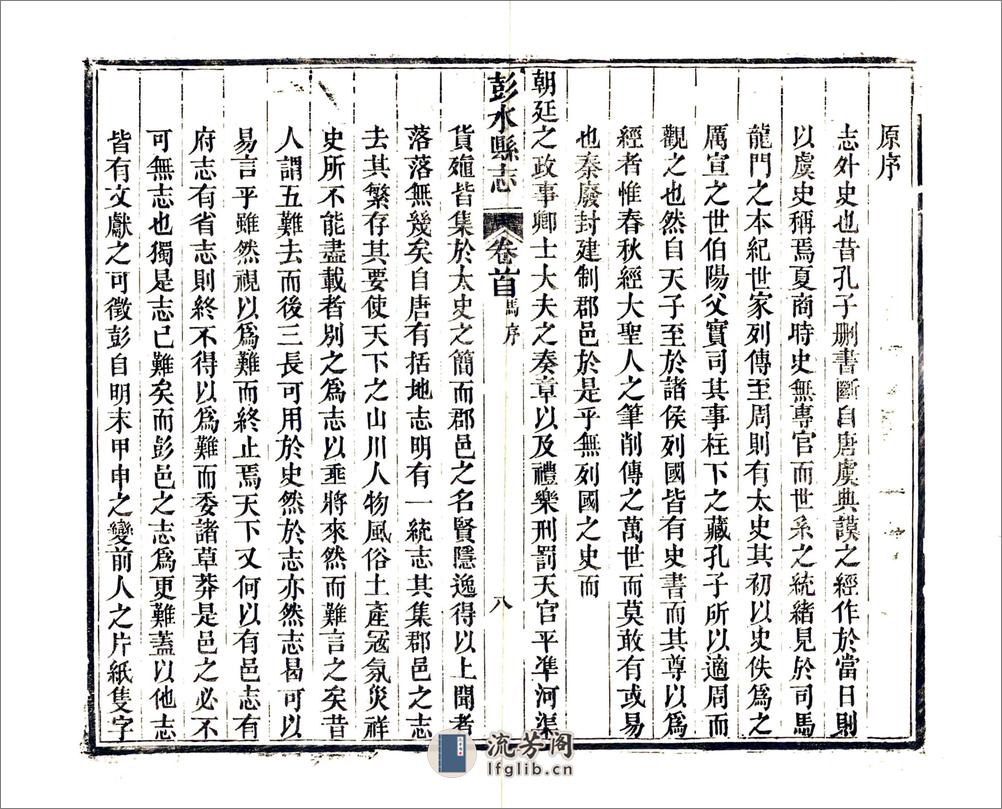 原序
志外史也昔孔子刪書斷自唐虞典謨之經作於當日則
以虞史稱焉夏商時史無專官而世系之統緒見於司馬
龍門之本紀世家列傳至周則有太史其初以史佚爲之
厲宣之世伯陽父實司其事柱下之藏孔子所以適周而
觀之也然自天子至於諸侯列國皆有史書而其尊以爲
經者惟春秋經大聖人之筆削傳之萬世而莫敢有或易
也秦廢封建制郡邑於是乎無列國之史而
朝廷之政事卿士大夫之奏章以及禮樂刑罰天官平準河渠
彭水縣志 卷首 馬序 八
貨殖皆集於太史之簡而郡邑之名賢隱逸得以上聞者
落落無幾矣自唐有括地志明有一統志其集郡邑之志
去其繁存其要使天下之山川人物風俗土產冠氛災祥
史所不能盡載者別之爲志以垂將來然而難言之矣昔
人謂五難去而後三長可用於史然於志亦然志曷可以
易言乎雖然視以爲難而終止焉天下又何以有邑志有
府志有省志則終不得以爲難而委諸草莽是邑之必不
可無志也獨是志已難矣而彭邑之志爲更難蓋以他志
皆有文獻之可徵彭自明末甲申之變前人之片紙隻字
流芳阁
lfglib.cn